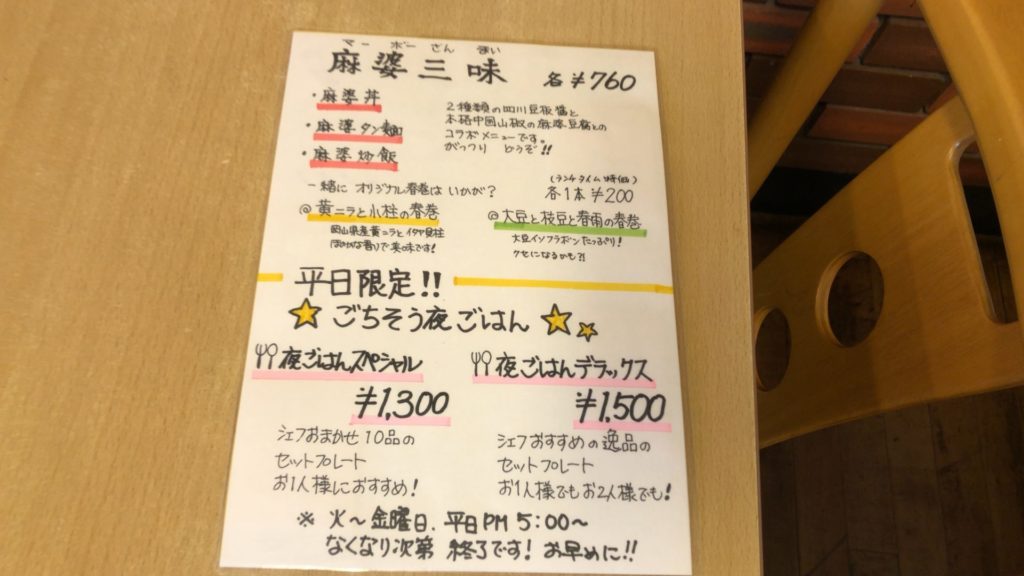 マーボーざんまい
麻婆三味 各¥760
・麻婆丼
・麻婆タン麺
・麻婆炒飯
2種類の四川豆板醤と
本格中国山椒の麻婆豆腐との
コラボメニューです。
がっつり どうぞ!!
一緒に オリジナル春巻は いかが?
(ランチタイム特価)
各1本 ¥200
@黄ニラと小柱の春巻
岡山県産黄ニラと イタヤ貝柱
ほのかな香りで美味です!
@大豆と枝豆と春雨の春巻
大豆イソフラボンたっぷり!
クセになるかも?!
平日限定!!
ごちそう夜ごはん
夜ごはんスペシャル
¥1,300
シェフおまかせ10品の
セットプレート
お1人様におすすめ!
夜ごはんデラックス
¥1,500
シェフおすすめの逸品の
セットプレート
お1人様でもお2人様でも!
※ 火~金曜日.平日PM 5:00~
なくなり次第 終了です! お早めに!!